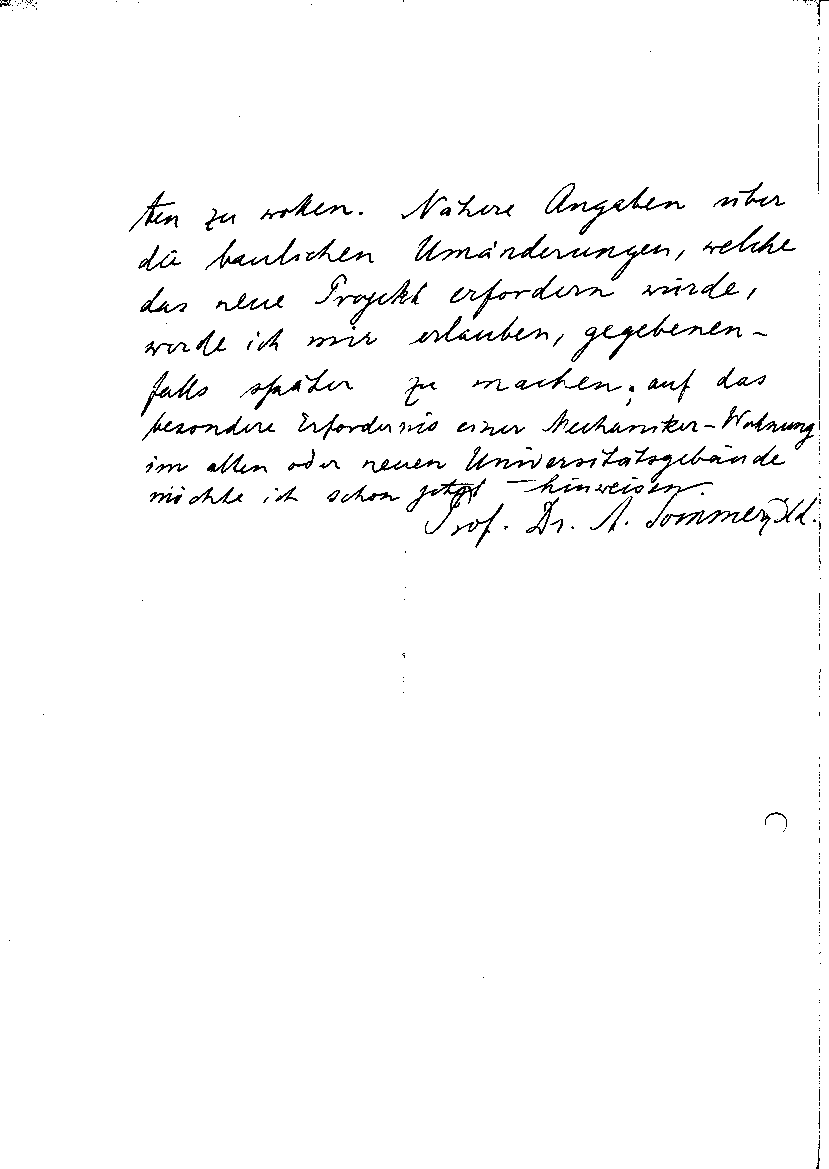 ten zu wollen. Nähere Angaben über
die baulichen Umänderungen, welche
das neue Projekt erfordern würde,
werde ich mir erlauben, gegebenen-
falls später zu machen; auf das
besondere Erfordernis einer Mechaniker-Wohnung
im alten oder neuen Universitätsgebäude
möchte ich schon jetzt hinweisen.
Prof. Dr. A. Sommerfeld.